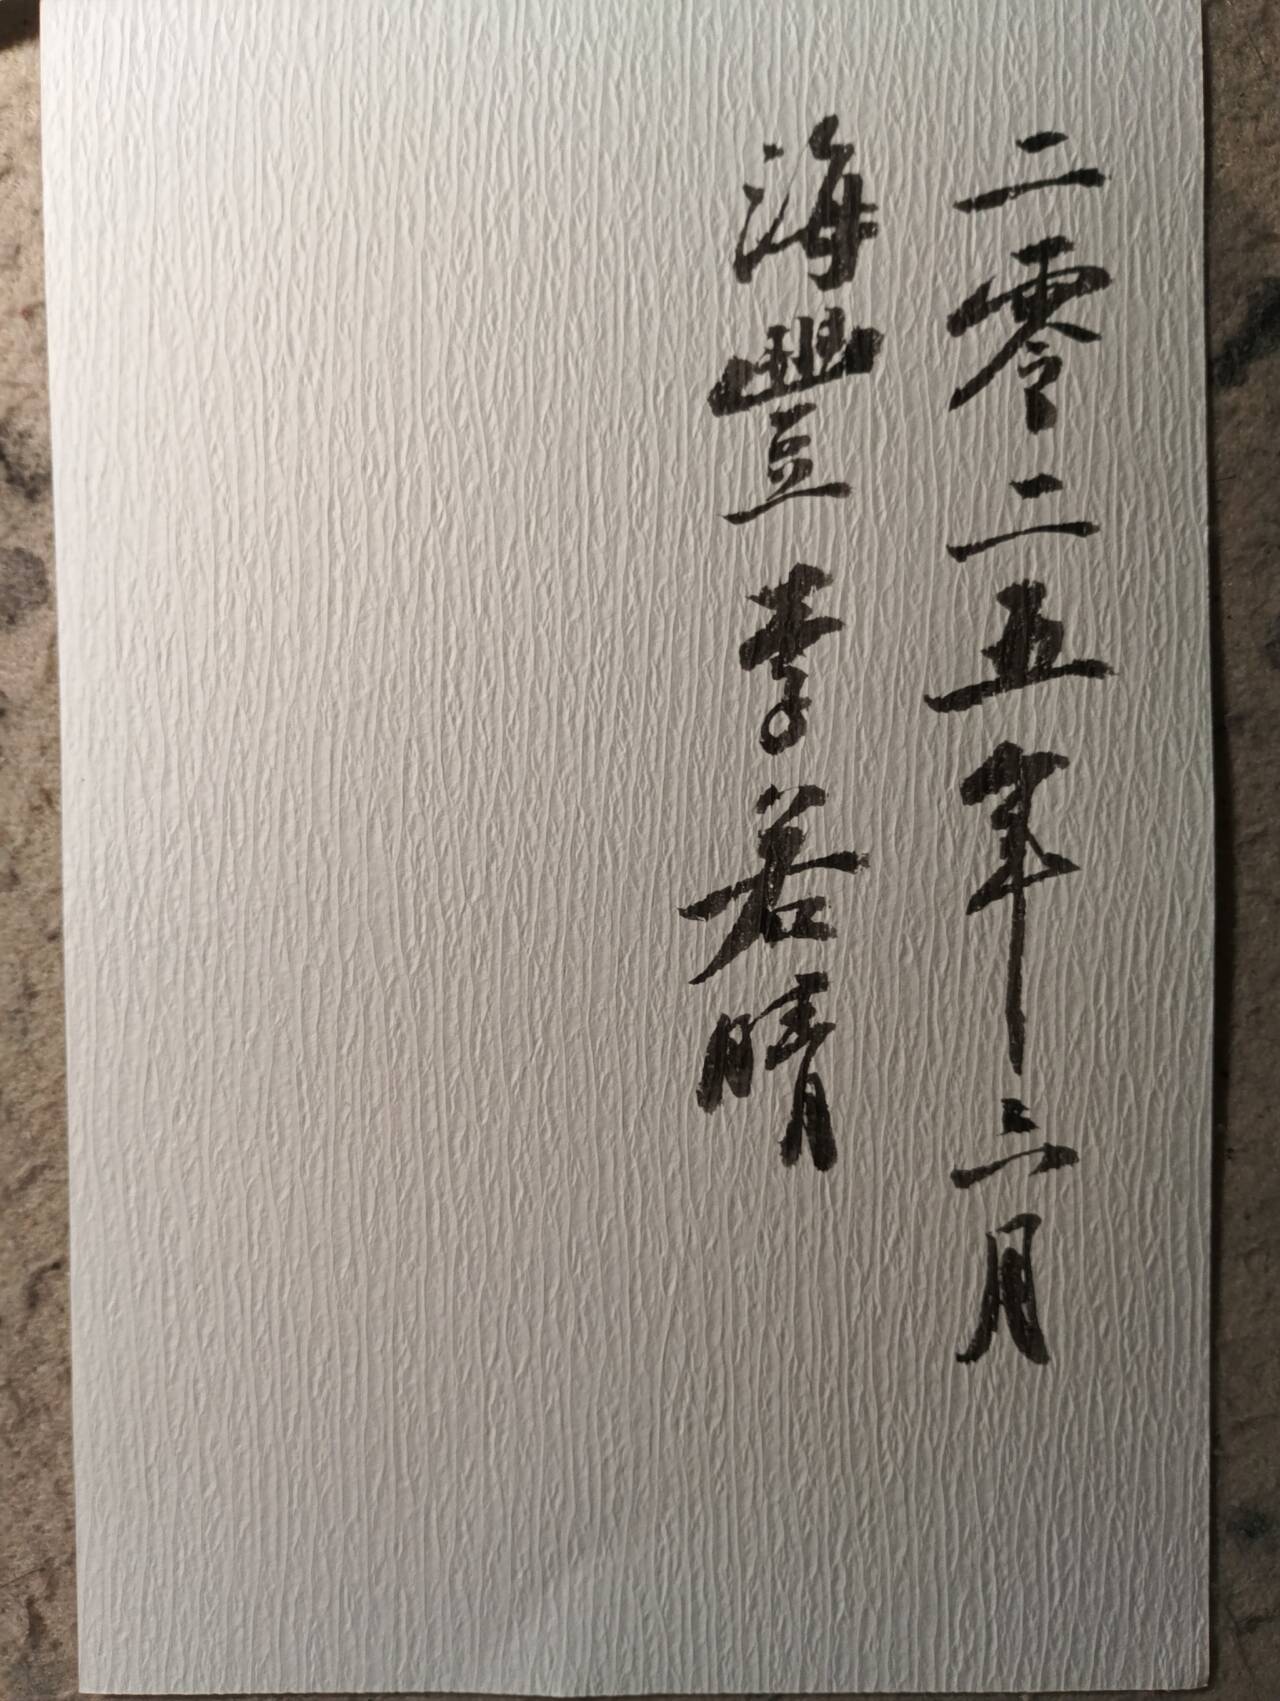 二零二五年六月
海豐李若晴